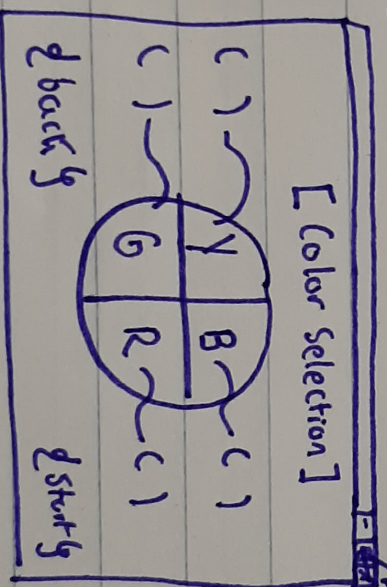 [Color Selection]
( ) Y B ( )
( ) G R ( )
{back} {Start}